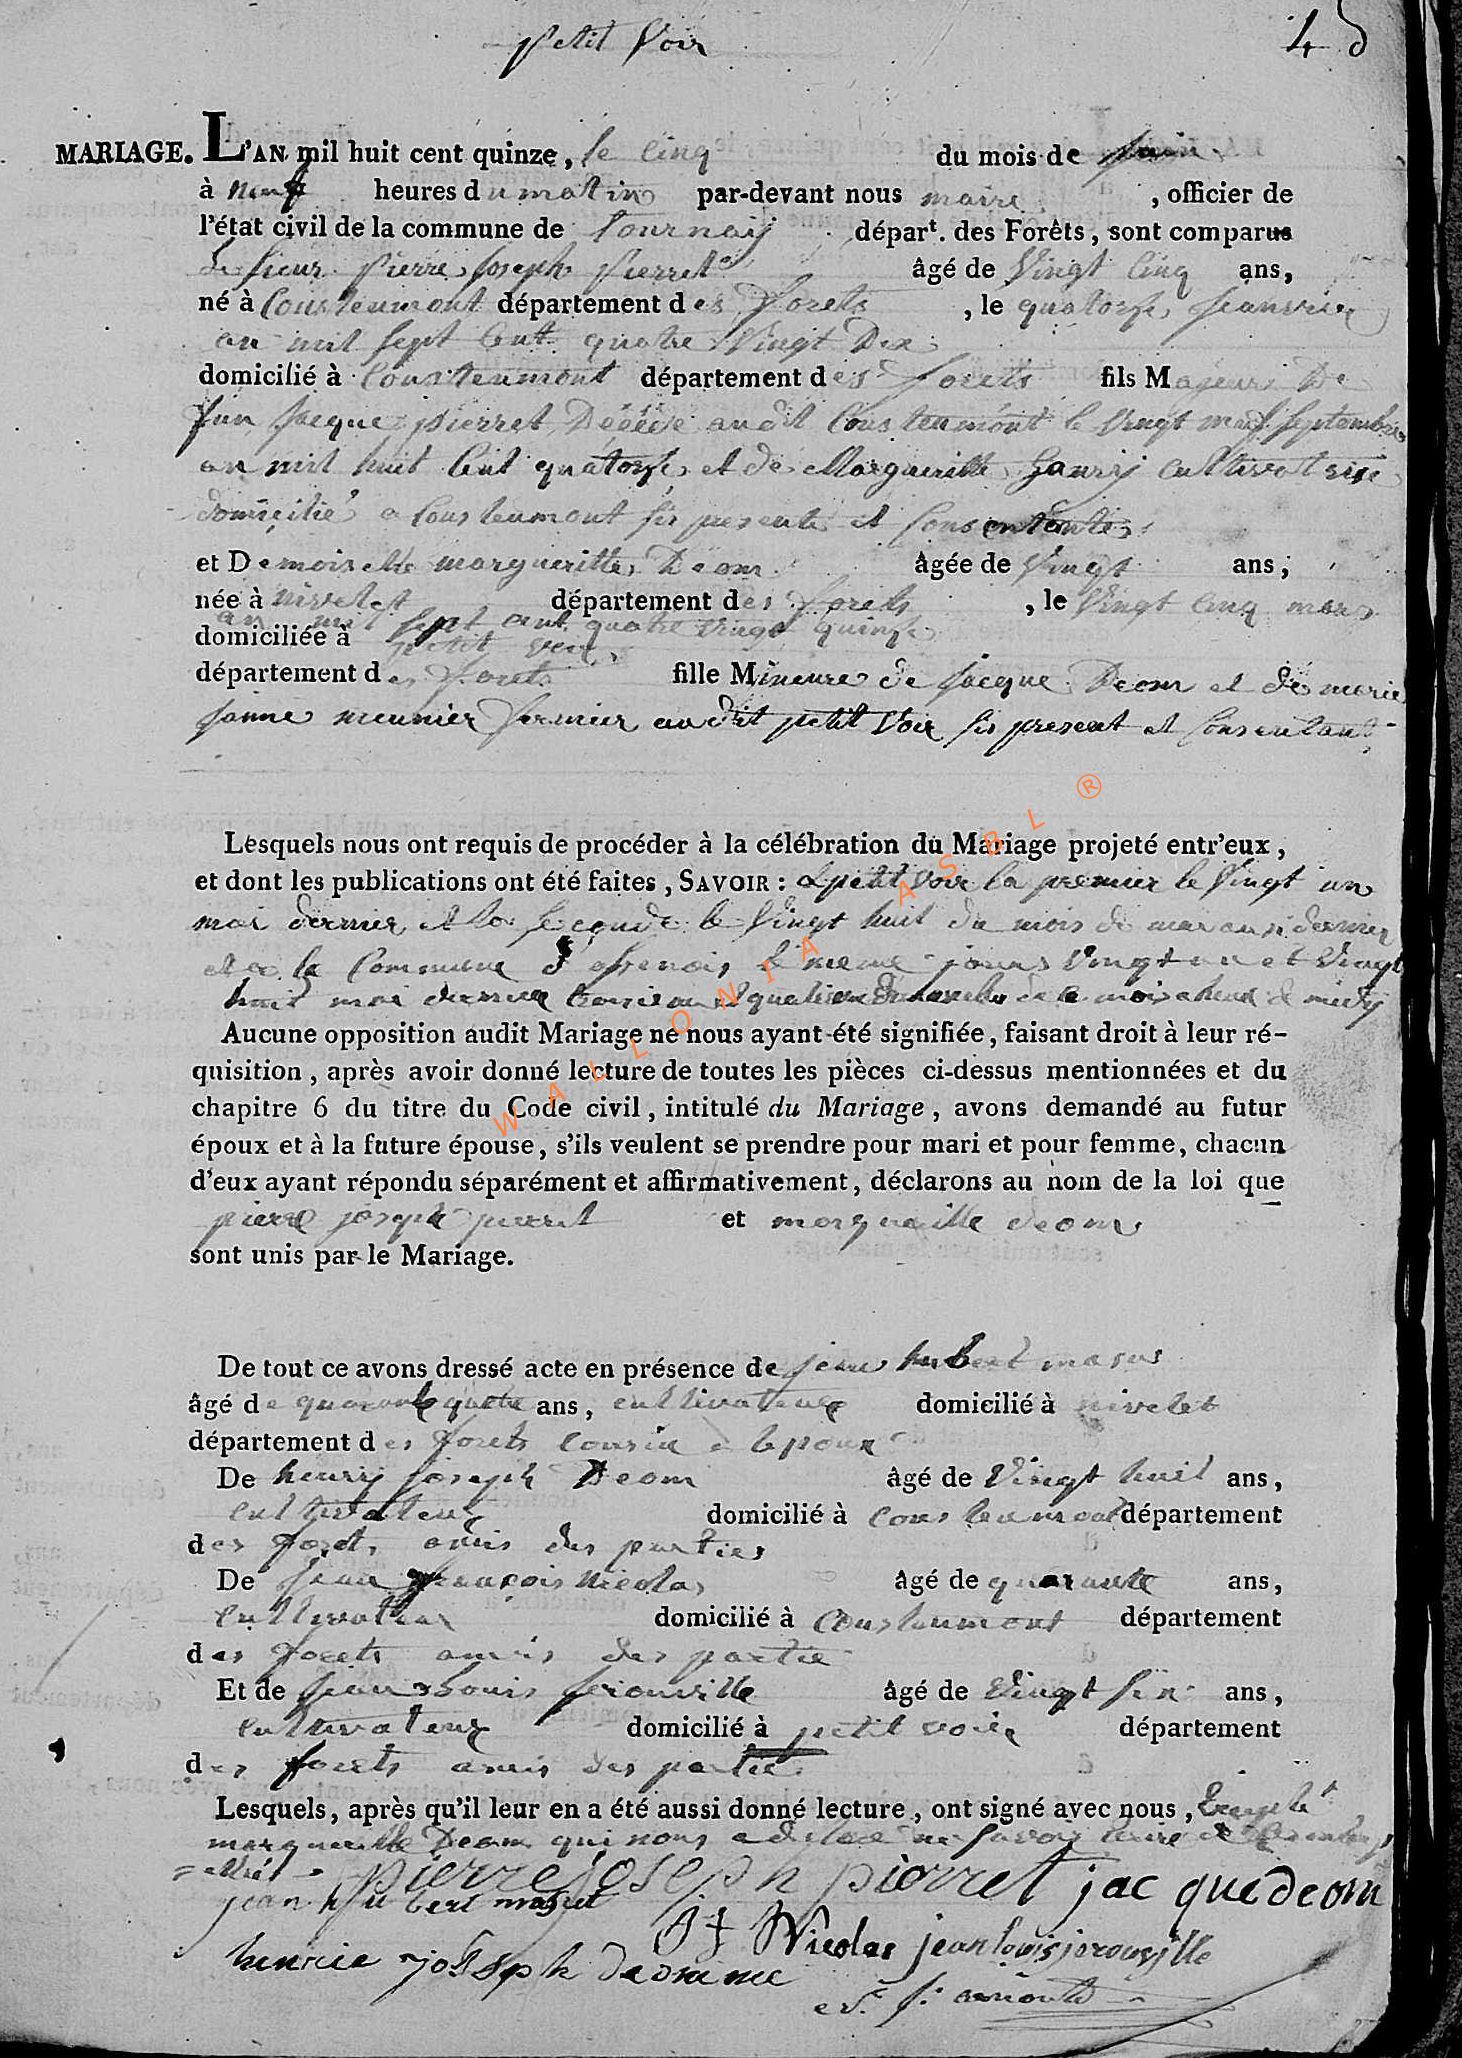 petit Voir
45
MARIAGE. L'AN mil huit cent quinze, le cinq du mois de juin
à neuf heures du matin par-devant nous maire, officier de
l'état civil de la commune de tournay dépar^t. des Forêts, sont comparus
le sieur pierre joseph pierret âgé de Vingt cinq ans,
né à Cousteumont département des forets, le quatorse jeanvrier
an mil sept Cent quatre Vingt Dix
domicilié à Cousteumont département des forets fils Majeur De
feu jacque pierret Décédé audit Cousteumont le Vingt neuf septembre
an mil huit Cent quatorse et de Margueritte hanry Cultivatrice
domicilié a Cousteumont si presente et Consentente
et Demoiselle margueritte Deom âgée de Vingt ans;
née à nivelet département des forets, le Vingt cinq mars
an mil sept cent quatre vingt quinse
domiciliée à petit voir
département des forets fille Mineure de jacque Deom et de marie
janne meunier fermier audit petit Voir si present et Consentant
Lesquels nous ont requis de procéder à la célébration du Mariage projeté entr'eux,
et dont les publications ont été faites, SAVOIR: a petit Voir la premier le Vingt un
mai dernier et la seconde le Vingt huit du mois de mai ausi dernier
et a la Commune d'ossenois le meme jours Vingt un et Vingt
huit mai dernier
Aucune opposition audit Mariage ne nous ayant été signifiée, faisant droit à leur ré-
quisition, après avoir donné lecture de toutes les pièces ci-dessus mentionnées et du
chapitre 6 du titre du Code civil, intitulé du Mariage, avons demandé au futur
époux et à la future épouse, s'ils veulent se prendre pour mari et pour femme, chacun
d'eux ayant répondu séparément et affirmativement, déclarons au nom de la loi que
pierre joseph pierret et margueritte deom
sont unis par le Mariage.
De tout ce avons dressé acte en présence de jean hubert masus
âgé de quarante quatre ans, cultivateur domicilié à nivelet
département des forets cousin a lepoux
De henry joseph Deom âgé de Vingt huit ans,
cultivateur domicilié à Cousteumont département
des foret, amis des parties
De jean françois Nicolas âgé de quarante ans,
cultivateur domicilié à Cousteumont département
des forets amis des partie
Et de jean Louis jerouville âgé de Vingt six ans,
cultivateur domicilié à petit voir département
des forets amis des partie
Lesquels, après qu'il leur en a été aussi donné lecture, ont signé avec nous, Excepté
margueritte Deom qui nous a déclaré ne savoir
pierre joseph pierret jacque deom
jean hubert
Nicolas jean louis jerouville
henrie josseph deomme
WALLONIA ASBL ®